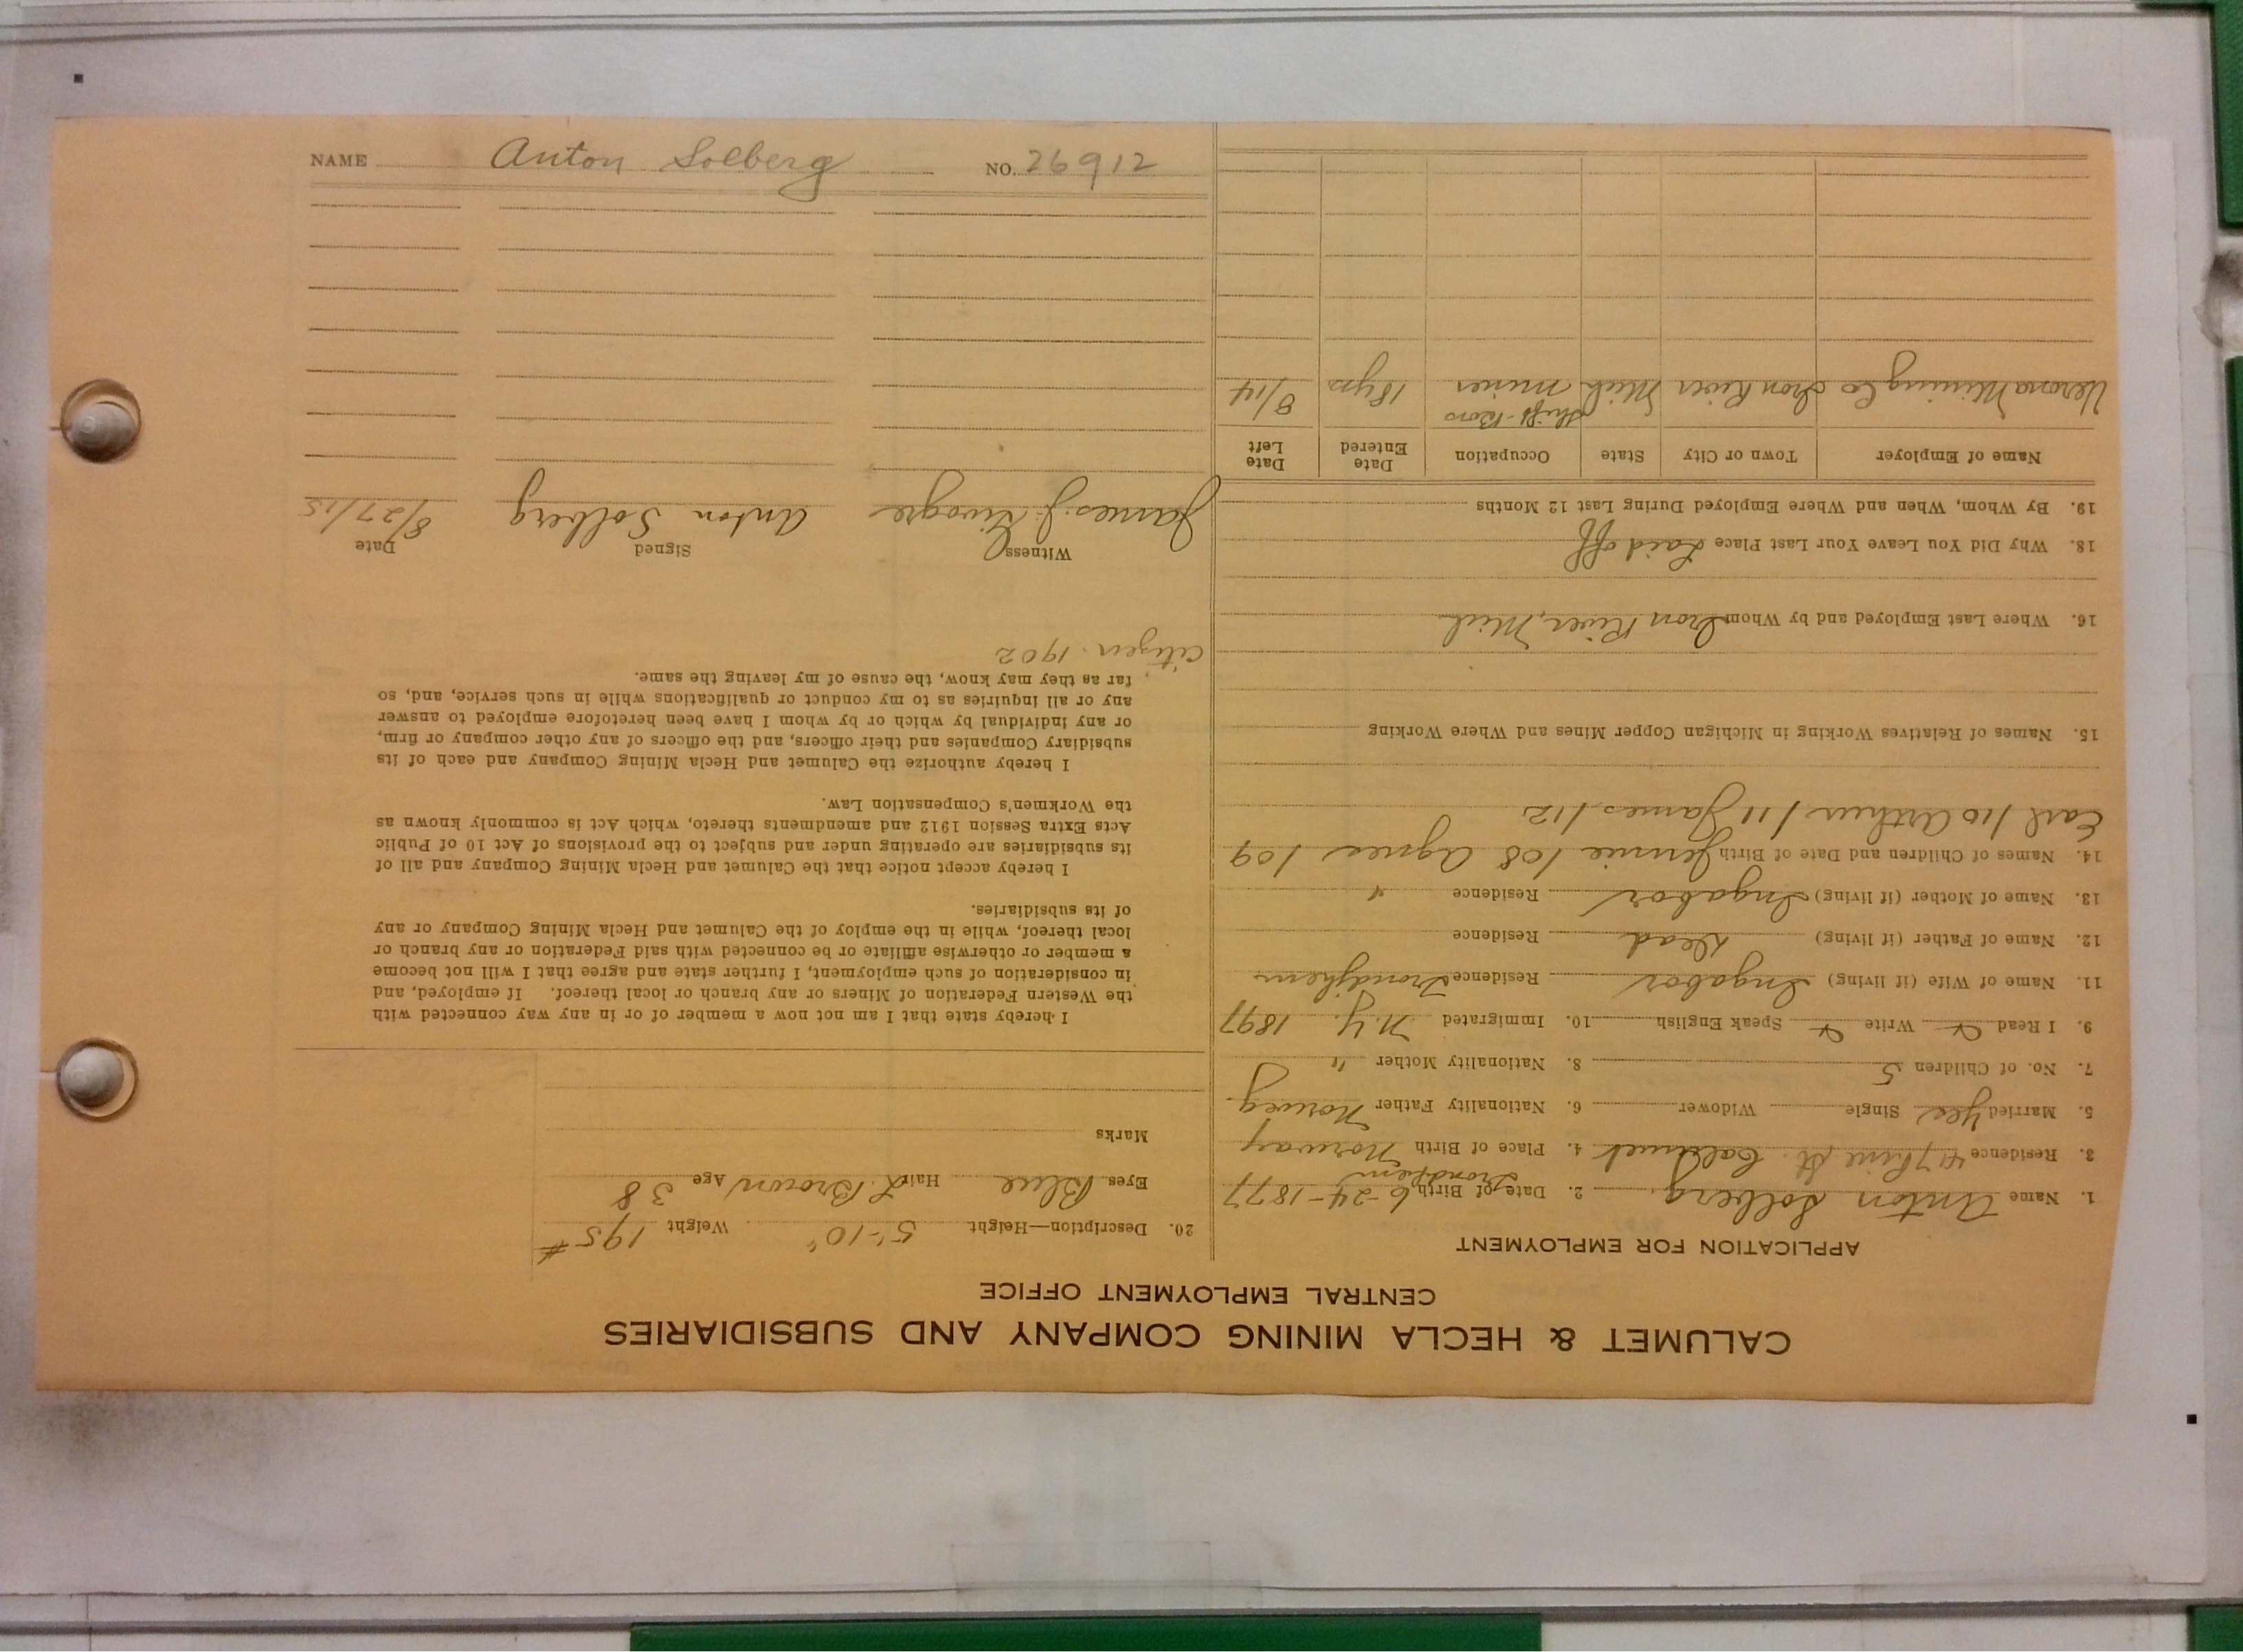 CALUMET & HECLA MINING COMPANY AND SUBSIDIARIES
CENTRAL EMPLOYMENT OFFICE
APPLICATION FOR EMPLOYMENT
1. Name Anton Solberg. 2. Date of Birth 6-24-1877
3. Residence 417 Pine St. Calumet 4. Place of Birth Trondhem Norway
5. Married Yes Single Widower 6. Nationality Father Norweg.
7. No. of Children 5 8. Nationality Mother "
9. I Read Write Speak English 10. Immigrated N.Y. 1897
11. Name of Wife (if living) Ingabor Residence Trondjhem
12. Name of Father (if living) Dead Residence
13. Name of Mother (if living) Ingabor Residence "
14. Names of Children and Date of Birth Jennie /08 Agnes /09
Earl /10 Arthur /11 James /12
15. Names of Relatives Working in Michigan Copper Mines and Where Working
16. Where Last Employed and by Whom Iron River, Mich
18. Why Did You Leave Your Last Place Laid off
19. By Whom, When and Where Employed During Last 12 Months
Name of Employer Town or City State Occupation Date Entered Date Left
Shift-Boss
Verona Mining Co Iron River Mich miner 18 yrs 8/14
20. Description—Height 5'-10" Weight 195#
Eyes Blue Hair L. Brown Age 38
Marks
I hereby state that I am not now a member of or in any way connected with
the Western Federation of Miners or any branch or local thereof. If employed, and
in consideration of such employment, I further state and agree that I will not become
a member or otherwise affiliate or be connected with said Federation or any branch or
local thereof, while in the employ of the Calumet and Hecla Mining Company or any
of its subsidiaries.
I hereby accept notice that the Calumet and Hecla Mining Company and all of
its subsidiaries are operating under and subject to the provisions of Act 10 of Public
Acts Extra Session 1912 and amendments thereto, which Act is commonly known as
the Workmen's Compensation Law.
I hereby authorize the Calumet and Hecla Mining Company and each of its
subsidiary Companies and their officers, and the officers of any other company or firm,
or any individual by which or by whom I have been heretofore employed to answer
any or all inquiries as to my conduct or qualifications while in such service, and, so
far as they may know, the cause of my leaving the same.
Citizen 1902
Witness Signed Date
James J. Anton Solberg 8/27/15
NAME Anton Solberg NO. 26912